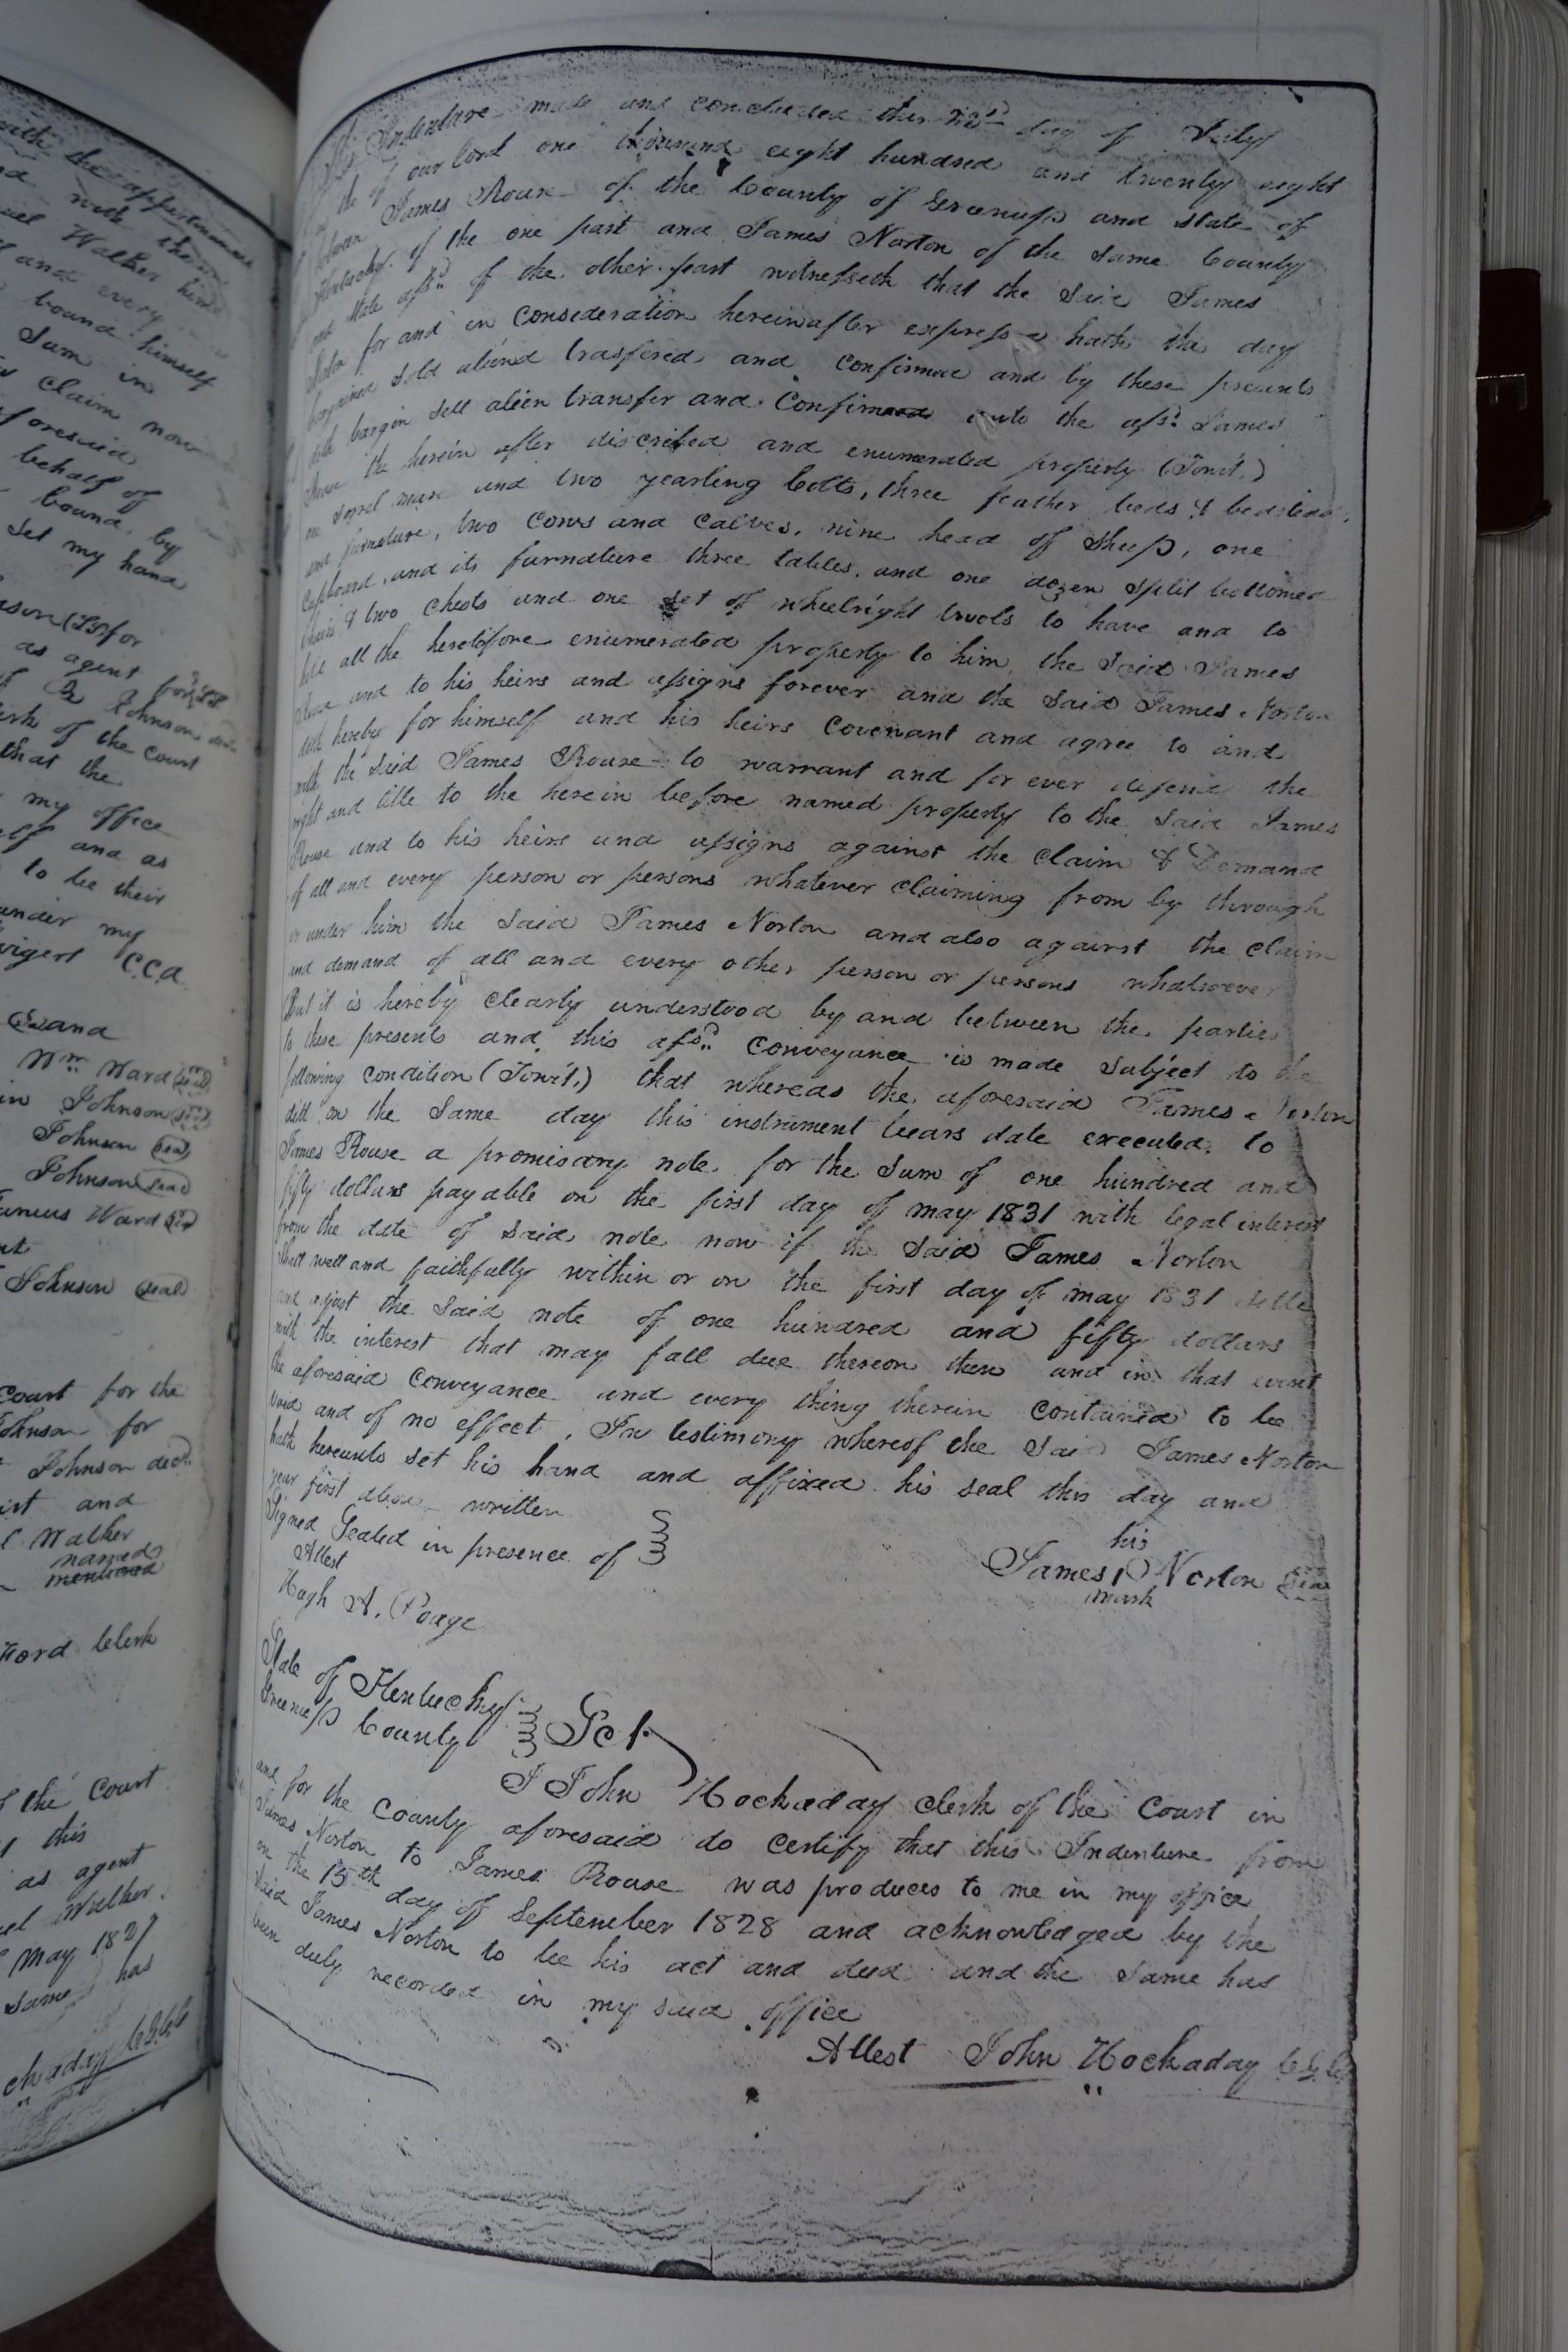 with the appurtenances
and with the
uel Walker him
and every
bound himself
Sum in
claim now
foresaid
behalf of
bound by
set my hand
son (LS) for
as agent for LS
G Johnson
erk of the court
that the
my office
elf and as
to be their
under my
wigert C.C.A.
and
Wm Ward (seal)
in Johnson (seal)
Johnson (seal)
Johnson (seal)
Ward (seal)
nt
Johnson (seal)
Court for the
Johnson for
Johnson decd.
ist and
l Walker
named
mentioned
ford Clerk
f the Court
this
as agent
uel Walker.
May 1827
same has
ckaday
This Indenture made and concluded this 22d day of July
the of our lord one thousand eight hundred and twenty eight
between James Rouse of the County of Greenup and state of
Kentucky of the one part and James Norton of the same County
and State afsd. of the other part witnesseth that the said James
Norton for and in consideration hereinafter express a hath the day
bargained sold aliend trasfered and confirmed and by these presents
doth bargin sell alien transfer and confirmed unto the afsd. James
Rouse the herein after discribed and enumerated property (Towit.)
one sorrel mare and two yearling Colts, three feather beds & bedsteads
and furnature, two cows and calves, nine head of sheep, one
Cupboard and its furnature three tables, and one dozen split bottomed
chairs & two chests and one set of wheelright tools to have and to
hold all the heretofore enumerated property to him the said James
Rouse and to his heirs and assigns forever and the said James Norton
doth hereby for himself and his heirs covenant and agree to and
with the said James Rouse to warrant and for ever defend the
right and title to the herein before named property to the said James
Rouse and to his heirs and assigns against the claim & Demand
of all and every person or persons whatever claiming from by through
or under him the said James Norton and also against the claim
and demand of all and every other person or persons whatsoever
But it is hereby clearly understood by and between the parties
to these presents and this afsd. conveyance is made subject to the
following condition (Towit.) that whereas the aforesaid James Norton
did on the same day this instrument bears date executed to
James Rouse a promisary note for the sum of one hundred and
fifty dollars payable on the first day of may 1831 with legal interest
from the date of said note now if the said James Norton
shall well and faithfully within or on the first day of may 1831 settle
and adjust the said note of one hundred and fifty dollars
with the interest that may fall due thereon then and in that event
the aforesaid conveyance and every thing therein contained to be
void and of no effect. In testimony whereof the said James Norton
hath hereunto set his hand and affixed his seal this day and
year first above written
Signed Sealed in presence of
Attest
Hugh A. Poage
his
James Norton (seal)
mark
State of Kentucky
Greenup County Sct.
I John Hockaday clerk of the Court in
and for the County aforesaid do certify that this Indenture from
James Norton to James Rouse was produced to me in my office
on the 15th day of September 1828 and acknowledged by the
said James Norton to be his act and deed and the same has
been duly recorded in my said office
Attest John Hockaday